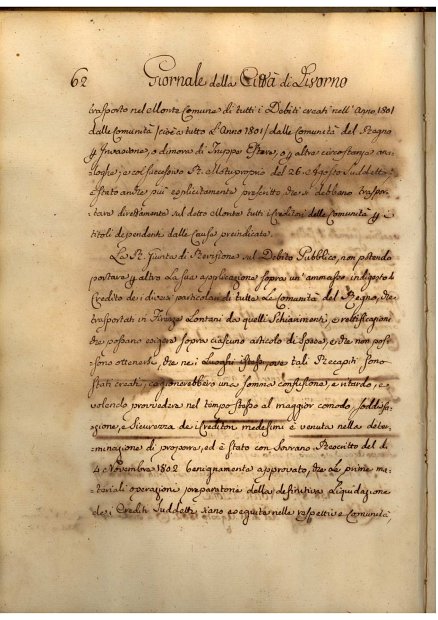 62 Giornale della Città di Livorno
trasporto nel Monte Comune di tutti i Debiti creati nell'Anno 1801
dalle Comunità (cioè a tutto L'Anno 1801) dalle Comunità del Regno
p Invasione, o dimora di Truppe Estere, o p altre circostanze ana-
loghe; e col successivo R. Motuproprio del 26 Agosto suddetto
è stato anche più esplicitamente prescritto che si debbano traspor-
tare direttamente sul detto Monte tutti i Creditori delle Comunità p i
titoli dependenti dalle Cause preindicate.
La R. Giunta di Revisione sul Debito Pubblico, non potendo
portare p altro la sua applicazione sopra un'ammasso indigesto di
Credito dei diversi particolari di tutte le Comunità del Regno, che
trasportati in Firenze Lontani da quelli Schiarimenti e rettificazioni
che possano esigere sopra ciascuno articolo di Spese, e che non pos-
sono ottenersi, che nei Luoghi istessi ove tali Recapiti sono
stati creati, cagionerebbero una somma confusione, e ritardo, e
volendo provvedere nel tempo stesso al maggior comodo, soddisfa-
zione, e Sicurezza dei Creditori medesimi è venuta nella deter-
minazione di proporre, ed è stato con Sovrano Rescritto del dì
4 Novembre 1802 benignamente approvato, che le prime ma-
teriali operazioni preparatorie della definitiva Liquidazione
dei Crediti Suddetti siano eseguite nelle respettive Comunità,